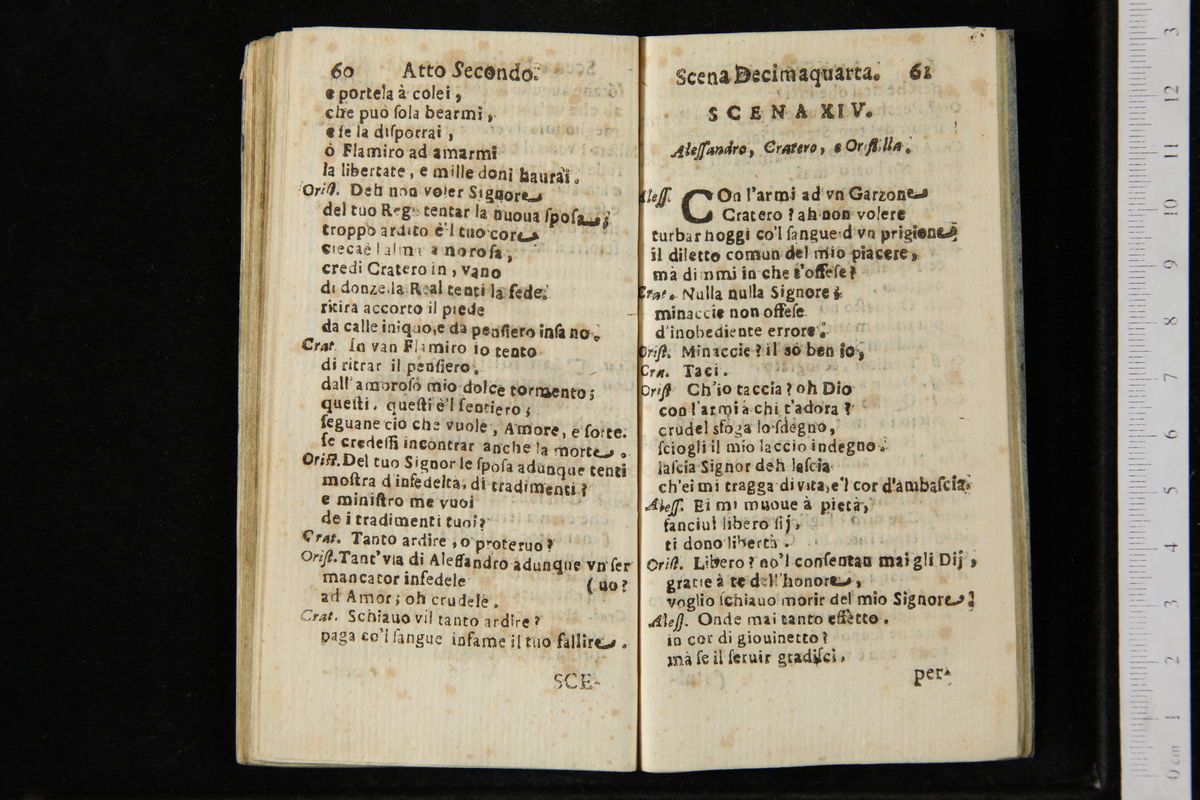 60 Atto Secondo.
e portela à colei,
che può ſola bearmi,
e ſe la diſporrai,
ò Flamiro ad amarmi
la libertate, e mille doni haurai.
Oriſt. Deh non voler Signore
del tuo Rege tentar la nuoua ſpoſa;
troppo ardito è'l tuo core
cieca è l'alma amoroſa,
credi Cratero in, vano
di donzella Real tenti la fede.
ritira accorto il piede
da calle iniquo, e da penſiero inſano.
Crat. In van Flamiro io tento
di ritrar il penſiero.
dall'amoroſo mio dolce tormento;
queſti, queſti è'l ſentiero;
ſeguane ciò che vuole, Amore, e ſorte.
ſe credeſſi incontrar anche la morte.
Oriſt. Del tuo Signor le ſpoſa adunque tenti
moſtra d'infedeltà, di tradimenti?
e miniſtro me vuoi
de i tradimenti tuoi?
Crat. Tanto ardire, o proteruo?
Oriſt. Tant'via di Aleſſandro adunque vn ſer
mancator infedele (uo?
ad Amor; oh crudele.
Crat. Schiauo vil tanto ardire?
paga co'l ſangue infame il tuo fallire.
SCE-
Scena Decimaquarta. 61
SCENA XIV.
Aleſſandro, Cratero, e Oriſtilla.
Aleſſ. COn l'armi ad vn Garzone
Cratero? ah non volere
turbar hoggi co'l ſangue d vn prigione
il diletto comun del mio piacere,
mà dimmi in che t'offeſe?
Crat. Nulla nulla Signore;
minaccie non offeſe
d'inobediente errore.
Oriſt. Minaccie? il sò ben io,
Cra. Taci.
Oriſt Ch'io taccia? oh Dio
con l'armi à chi t'adora?
crudel sfoga lo ſdegno,
ſciogli il mio laccio indegno.
laſcia Signor deh laſcia
ch'ei mi tragga di vita, e'l cor d'ambaſcia.
Aleſſ. Ei mi muoue à pietà,
fanciul libero ſij,
ti dono libertà.
Oriſt. Libero? nò'l conſentan mai gli Dij,
gratie à te dell'honore,
voglio ſchiauo morir del mio Signore;
Aleſſ. Onde mai tanto effetto.
in cor di giouinetto?
mà ſe il ſeruir gradiſci,
per-